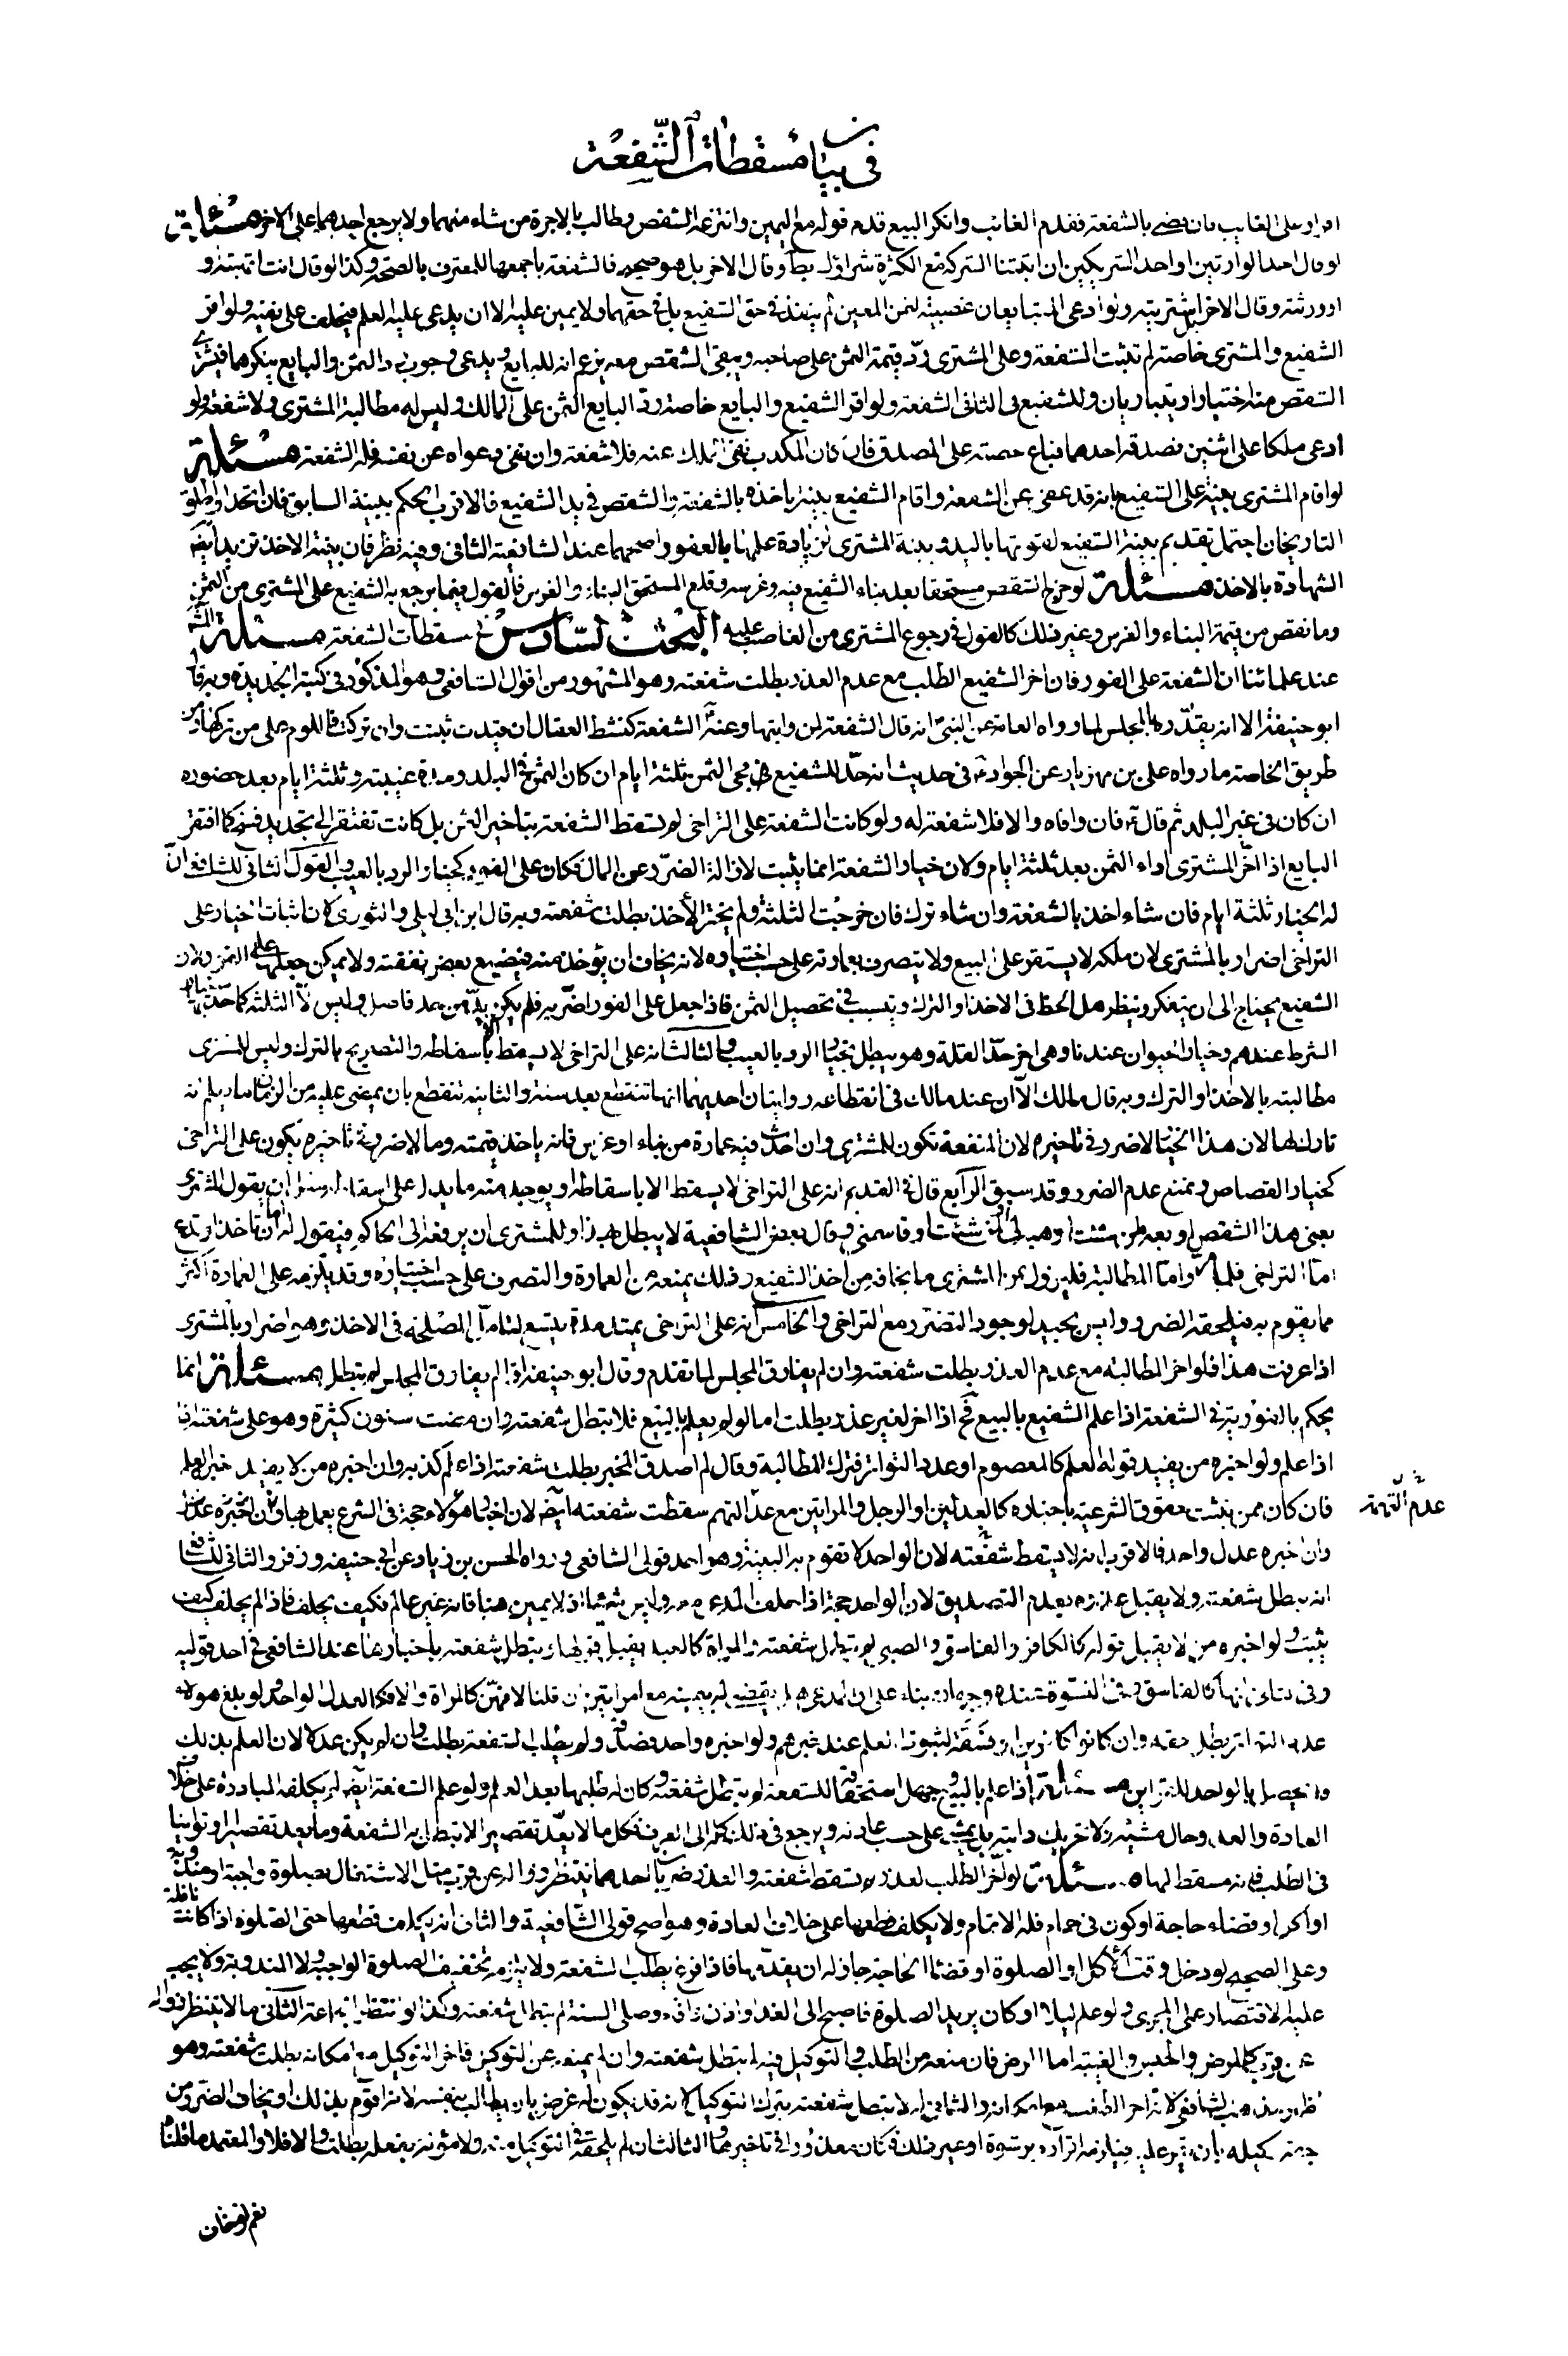 في بيان مسقطات الشفعة
على الغايب فان قضى بالشفعة فقدم الغائب وانكر البيع قدم قوله مع اليمين وانتزعه الشقص وطالب بالاجرة من شاء منهما ولا يرجع احدهما على الاخر مسئلة
لو قال احد الوارثين او احد الشريكين ان ابتعنا الشركة مع الكثرة شراؤك بط وقال الاخر بل هو صحيح فالشفعة باجمعها للمعترف بالصحة وكذا لو قال انت اتهبته و
او ورثته وقال الاخر بل اشتريته ولو ادعى المتبايعان غصبية الثمن المعين لم ينفذ في حق الشفيع بل في حقهما ولا يمين عليه الا ان يدعى عليه العلم فيحلف على نفيه ولو اقر
الشفيع والمشترى خاصة لم تثبت الشفعة وعلى المشترى رد قيمة الثمن على صاحبه ويبقى الشقص معه يزعم انه للبايع ويدعى وجوب رد الثمن والبايع ينكرهما فيشترى
الشقص منه اختيارا ويتباريان وللشفيع في الثانى الشفعة ولو اقر الشفيع والبايع خاصة رد البايع الثمن على المالك وليس له مطالبة المشترى ولا شفعة ولو
ادعى ملكا على اثنين فصدقه احدهما فباع حصته على المصدق فان كان المكذب نفى الملك عنه فلا شفعة وان نفى دعواه عن نفسه فله الشفعة مسئلة
لو اقام المشترى بينة على الشفيع بانه قد عفى عن الشفعة واقام الشفيع بينة باخذه بالشفعة والشقص في يد الشفيع فالاقرب الحكم ببينة السابق فان اتحدا او اطلق
التاريخان احتمل تقديم بينة الشفيع لقوتها باليد وبينة المشترى لزيادة علمها بالعفو واصحهما عند الشافعية الثانى وفيه نظر فان بينة الاخذ تزيد ايضا
الشهادة بالاخذ مسئلة لو خرج الشقص مستحقا بعد بناء الشفيع فيه وغرسه وقلع المستحق البناء والغرس فالقول فيما يرجع به الشفيع على المشترى من الثمن
وما نقص من قيمة البناء والغرس وغير ذلك كالقول في رجوع المشترى من الغاصب عليه البحث السادس في مسقطات الشفعة مسئلة المشهور
عند علمائنا ان الشفعة على الفور فان اخر الشفيع الطلب مع عدم العذر بطلت شفعته وهو المشهور من اقوال الشافعى وهو المذكور في كتبه الجديدة وبه قال
ابو حنيفة الا انه يقدره بالمجلس لما رواه العامة عن النبى انه قال الشفعة لمن واثبها وعنه الشفعة كنشط العقال ان قيدت ثبتت وان تركت فاللوم على من تركها ومن
طريق الخاصة ما رواه على بن مهزيار عن الجواد في حديث انه حد للشفيع في مجئ الثمن ثلثة ايام ان كان الثمن في البلد ومدة غيبته وثلثة ايام بعد حضوره
ان كان في غير البلد ثم قال فان وافاه والا فلا شفعة له ولو كانت الشفعة على التراخى لم تسقط الشفعة بتاخير الثمن بل كانت تفتقر الى تجديد فسخ كما افتقر
البايع اذا اخر المشترى اداء الثمن بعد ثلثة ايام ولان خيار الشفعة انما يثبت لازالة الضرر عن المال فكان على الفور كخيار الرد بالعيب والقول الثانى للشافعى ان
له الخيار ثلثة ايام فان شاء اخذ بالشفعة وان شاء ترك فان خرجت الثلثة ولم يختر الأخذ بطلت شفعته وبه قال ابن ابى ليلى والثورى لان اثبات الخيار على
التراخى اضرار بالمشترى لان ملكه لا يستقر على المبيع ولا يتصرف بعمارته على حسب اختياره لانه يخاف ان يؤخذ منه فيضيع بعض نفقته ولا يمكن جعلها على الفور لان
الشفيع يحتاج الى ان يتفكر وينظر هل الحظ في الاخذ او الترك ويتسبب في تحصيل الثمن فاذا جعل على الفور اضر به فلم يكن بد من حد فاصل وليس الا الثلثة كما حد بها خيار
الشرط عندهم وخيار الحيوان عندنا وهى اخر حد القلة وهو يبطل بخيار الرد بالعيب والثالث انه على التراخى لا يسقط الا باسقاطه والتصريح بالترك وليس للمشترى
مطالبته بالاخذ او الترك وبه قال مالك الا ان عند مالك في انقطاعه روايتان احديهما انها تنقطع بعد سنة والثانية تنقطع بان يمضى عليه من الزمان ما يعلم انه
تارك لها لان هذا الخيار لا ضرر في تاخيره لان المنفعة تكون للمشترى وان احدث فيه عمارة من بناء او غرس فانه ياخذ قيمته وما لا ضرر في تاخيره يكون على التراخى
كخيار القصاص ويمنع عدم الضرر وقد سبق الرابع قال في القديم انه على التراخى لا يسقط الا باسقاطه او يوجد منه ما يدل على اسقاطه ان يقول للمشترى
بعنى هذا الشقص او بعه لمن شئت او هبه لى او لمن شئت او قاسمنى وقال بعض الشافعية لا يبطل بهذا وللمشترى ان يرفعه الى الحاكم فيقول له اما ان تاخذ او تدع
اما التراخى فلما مر واما المطالبة فليزول عن المشترى ما يخافه من اخذ الشفيع وذلك يمنعه من العمارة والتصرف على حسب اختياره وقد يلزمه على العمارة اكثر
مما يقوم به فيلحقه الضرر وليس بجيد لوجود التضرر مع التراخى والخامس انه على التراخى يمتد مدة يتسع لتامل المصلحة في الاخذ وهو اضرار بالمشترى
اذا عرفت هذا فلو اخر المطالبة مع عدم العذر بطلت شفعته وان لم يفارق المجلس لما تقدم وقال ابو حنيفة اذا لم يفارق المجلس لم تبطل مسئلة انما
يحكم بالفورية في الشفعة اذا علم الشفيع بالبيع فح اذا اخر لغير عذر بطلت اما لو لم يعلم بالبيع فلا تبطل شفعته وان مضت سنون كثيرة وهو على شفعته
اذا علم ولو اخبره من يفيد قوله العلم كالمعصوم او عدد التواتر فترك المطالبة وقال لم اصدق المخبر بطلت شفعته وان اخبره من لا يفيد خبره العلم
فان كان ممن يثبت حقوق الشرعية باخباره كالعدلين او الرجل والمراتين مع عدالتهم سقطت شفعته ايضا لان اخبار هؤلاء حجة في الشرع يعمل بها
عدم التهمة
وان اخبره عدل واحد فالاقرب انه لا يسقط شفعته لان الواحد لا تقوم به البينة وهو احد قولى الشافعى ورواه الحسن بن زياد عن ابى حنيفة وزفر والثانى للشافعى
انه يبطل شفعته ولا يقبل عذره بعدم التصديق لان الواحد حجة اذا حلف المدعى معه وليس شيئا اذ لا يمين هنا فانه غير عالم فكيف يحلف فاذا لم يحلف كيف
يثبت ولو اخبره من لا يقبل قوله كالكافر والفاسق والصبى لم تبطل شفعته والمراة كالعبد يبطل شفعته باخبارهما عند الشافعى في احد قوليه
وفى الثانى انها كالفاسق وفى النسوة عنده وجهان بناء على ان المدعى هل يقضى له بيمينه مع امراتين ان قلنا لا فهن كالمراة والا فكالعدل الواحد ولو بلغ هولاء
عدد التواتر بطل حقه وان كانوا كفارا او فسقة لثبوت العلم عند خبرهم ولو اخبره واحد فصدقه ولم يطلب الشفعة بطلت وان لم يكن عدلا لان العلم بذلك
قد يحصل بالواحد للقراين مسئلة اذا علم بالبيع وجهل استحقاقه للشفعة لم تبطل شفعته وكان له طلبها بعد العلم ولو علم الشفعة ايضا لم يكلف المبادرة على خلاف
العادة والعدو حال مشيه ولا تحريك دابته بل يمشى على حسب عادته ويرجع في ذلك كله الى العرف فكل ما لا يعد تقصيرا لا تبطل به الشفعة وما يعد تقصيرا وتوانيا
في الطلب فانه مسقط لها مسئلة لو اخر الطلب لعذر لم تسقط شفعته والعذر ضربان احدهما ينتظر زواله عن قرب مثل الاشتغال بصلوة واجبة او مندوبة
او اكل او قضاء حاجة او كون في حمام فله الاتمام ولا يكلف قطعها على خلاف العادة وهو اصح قولى الشافعية والثانى انه يكلف قطعها حتى الصلوة اذا كانت نافلة
وعلى الصحيح لو دخل وقت الأكل او الصلوة او قضاء الحاجة جاز له ان يقدمها فاذا فرغ يطلب الشفعة ولا يلزمه تخفيف الصلوة الواجبة ولا المندوبة ولا يجب
عليه الاقتصار على المجزى ولو علم ليلا او كان يريد الصلوة فاصبح الى الغد او اذن واقام وصلى السنة لم تبطل شفعته وكذا لو انتظر الجماعة الثانى ما لا ينتظر زواله
عن قرب كالمرض والحبس والغيبة اما المرض فان منعه من الطلب والتوكيل فيه لم تبطل شفعته وان لم يمنعه عن التوكيل فاخر التوكيل مع امكانه بطلت شفعته وهو
اظهر مذهب الشافعى لانه اخر الطلب مع امكانه والثانى انه لا تبطل شفعته بترك التوكيل لانه قد يكون له غرض بان يطالب بنفسه لانه اقوم بذلك او يخاف الضرر من
جهة وكيله بان يقر عليه فيلزمه اقراره برشوة او غير ذلك فكان معذورا في تاخيره والثالث ان لم يلحقه في التوكيل منة ولا مؤنة بفعله بطلت والا فلا والمعتمد ما قلناه
نعم لو خاف